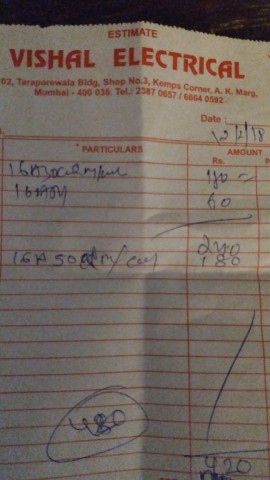 ESTIMATE
VISHAL ELECTRICAL
02, Taraporewala Bldg, Shop No.3, Kemps Corner, A. K. Marg,
Mumbai - 400 036. Tel.: 2387 0657 / 6664 0592
Date : 12/2/18
PARTICULARS AMOUNT
Rs. P
16A 180 -
16A 60
240
16A 180
480
420